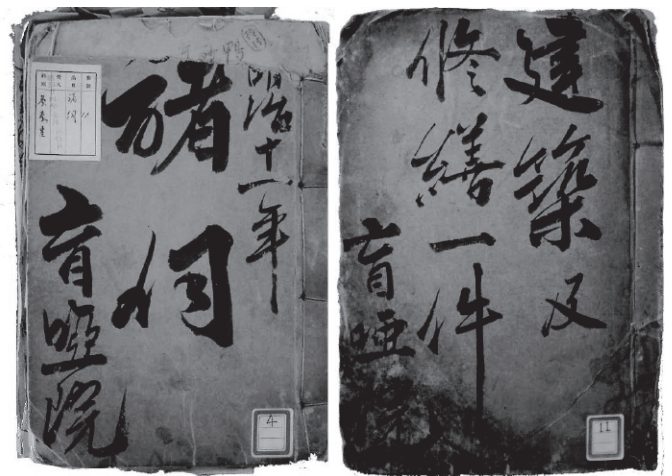 明治十一年
諸伺
盲啞院
4
建築及
修繕一件
盲啞院
11